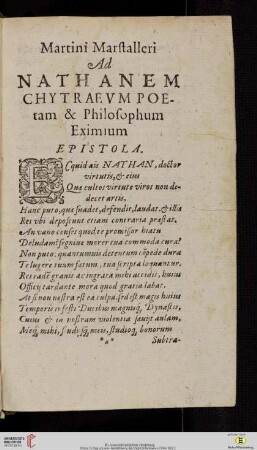 Martini Marstalleri
Ad
NATHANEM
CHYTRAEVM POE-
tam & Philosophum
Eximium
EPISTOLA.
ECquid ais NATHAN, doctor
virtutis, & eius
Quæ cultos virtute viros non de-
decet artis.
Hanc puto, quæ suades, defendis, laudas, & illa
Res ubi deposcunt etiam contraria præstas.
An vano censes quod te promissor hiatu
Deludam? segnius morer tua commoda cura?
Non puto: quantumuis detentum cõpede dura
Te lugere tuum fatum, tua scripta loquuntur.
Res tade granis ac ingrata mihi accidit, huius
Officij tardante mora quod gratia labat.
At si non nostra est ea culpa, sed est magis huius
Temporis infesti Ducibus magnisq, Dynastis,
Cuius & in nostram violentia sæuijt aulam,
Meq, mihi, studijsq, meis, studioq, bonorum
Subtra-